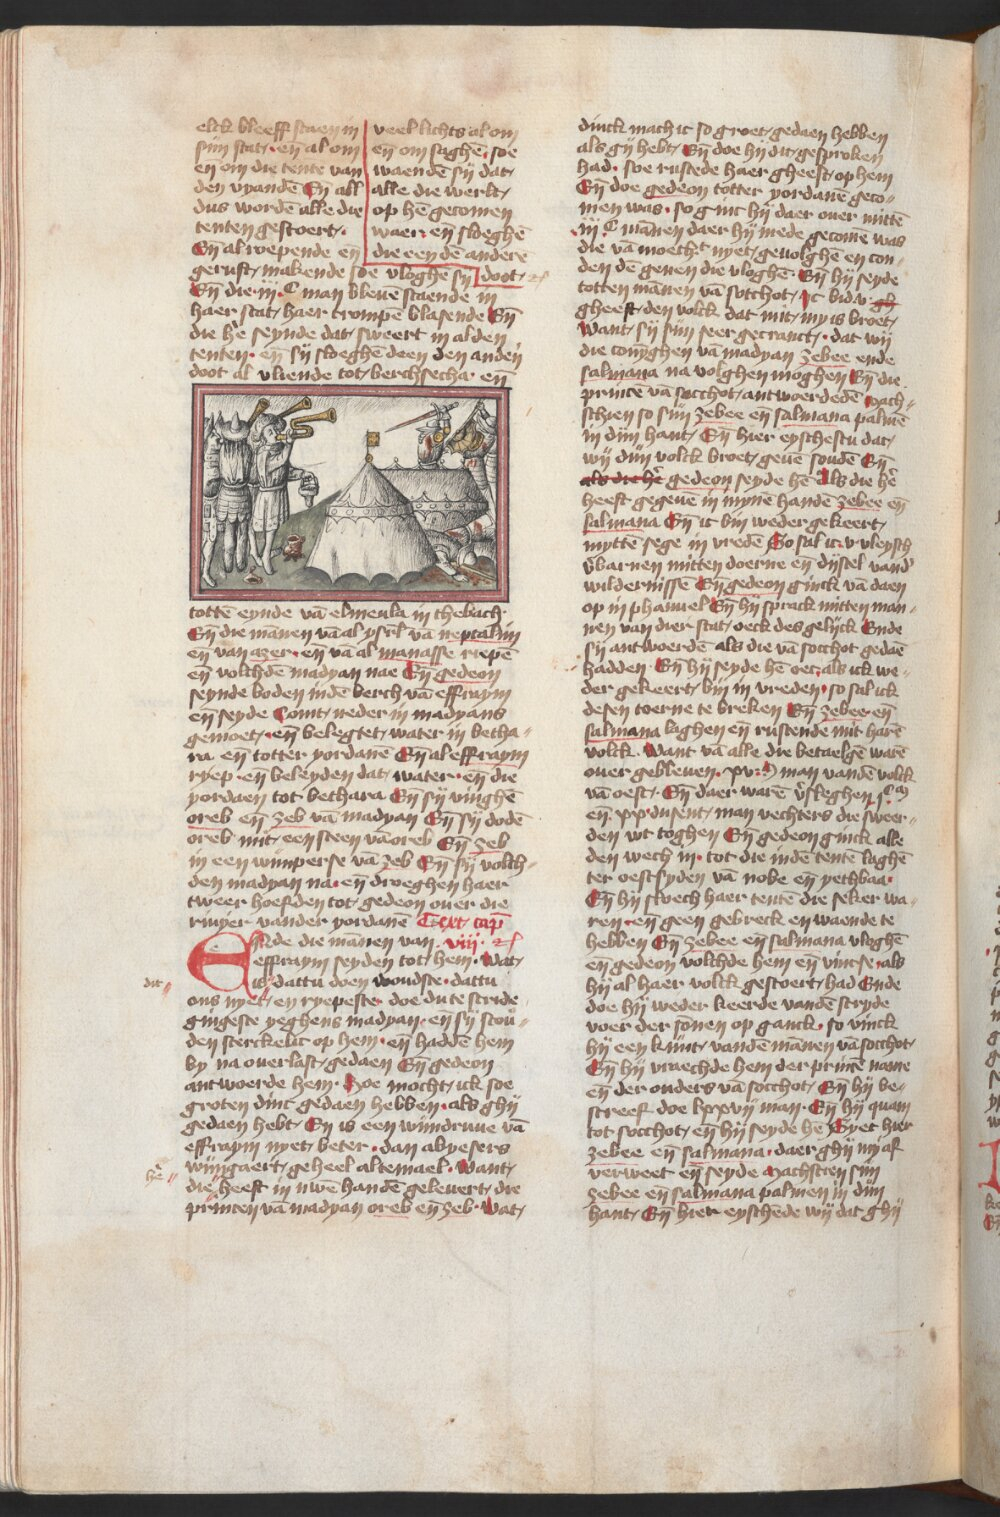 elck bleeff staen in
sijn stat· en̄ al om
en̄ om die tente van
den vyandē En̄ all
dus wordē alle die
tenten gestoert·
En̄ al roepende en̄
geruft makende soe vloghē sij
En̄ die ·iij· C man bleuē staende in
haer stat haer trompē blasende En̄
die hēr seynde dat sweert in al den
tenten· en̄ sij sloeghē deen den anderē
doot al vliende tot berchsecha· en̄
veel lichts al om
en̄ om saghē· soe
waendē sij dat
alle die werlt
op hē gecomen
waer· en̄ sloeghē
die een dē anderē
doot·
tottē eynde vā elmeula in thebach·
En̄ die mānen vā al ysrl̄ vā neptalim
en̄ van azer· en̄ vā al manasse riepē
en̄ volchdē madyan nae En̄ gedeon
seynde boden indē berch vā effraym
en̄ seyde Comt neder in madyans
gemoet· en̄ belegtet water in betha-
ra· en̄ totter yordanē En̄ al effraym
ryep· en̄ beleyden dat water· en̄ die
yordaen tot bethara En̄ sij vinghē
oreb en̄ zeb vā madyan En̄ sij dodē
oreb mit een steen vā oreb En̄ zeb
in een wijnperse vā zeb En̄ sij volch-
den madyan na· en̄ droeghen haer
tweer hoefden tot gedeon ouer die
riuyer vander yordanē Text cap̄
Ende die mānen van ·viij·
effraym seyden tot hem· Wat
is dattu doen woudste· dattu
ons nyet en ryepeste doe du te stride
gingeste yeghens madyan· en̄ sij stou-
den sterckelic op hem· en̄ haddē hem
by na ouerlast gedaen En̄ gedeon
antwoerde hem· Hoe mocht ick soe
groten dinc gedaen hebben· als ghij
gedaen hebt En is een wijndruue vā
effraym nyet beter· dan abyesers
wijngaert geheel altemael· Want
die heeft in uwē handē geleuert die
princen vā madyan oreb en̄ zeb· Wat
dit
hēr
dinck mach ic so groet gedaen hebben
als gij hebt En̄ doe hij dit gesproken
had· soe rustede haer gheest op hem
En̄ doe gedeon totter yordanē geco-
men was· so ginc hij daer ouer mittē
·iij· C mānen daer hij mede gecomē was
die vā moetht nyet geuolghē en con-
den dē genen die vloghē· En̄ hij seyde
totten mānen vā sotchot· Ic bid v gh
gheeft den volck dat mit my is broet
Want sij sijn seer gecranct· dat wij
die conyghen vā madyan zebee ende
salmana na volghen moghen En̄ die
princē vā socchot antwoerdedē Mach-
schien so sijn zebee en̄ salmana palmē
in dijn hant En̄ hier eyschestu dat
wij dijn volck broet geuē soudē En̄
als die hēr gedeon seyde hē Als die hēr
heeft gegeuē in mynē handē zebee en̄
salmana En̄ ic bin weder gekeert
mytten sege in vredē So sal ic v vleysch
vbarnen mitten doerne en̄ dijstel vand'
wildernissē En̄ gedeon ginck vā daen
op in phanuel En̄ hij sprack mitten man-
nen van dier stat oeck des gelijck Ende
sij antwoerdē als die vā socchot gedaē
hadden En̄ hij seyde hē oec· als ick we-
der gekeert bin in vreden· so sal ick
desen toerne te breken En̄ zebee en̄
salmana laghen en̄ rustende mit harē
volck· Want vā alle die betaelgē warē
ouer gebleuen· xv· M man vandē volck
vā oest· En̄ daer warē v'slegh̄en ·C·
en̄ xx dusent man vechters die sweer-
den wt toghen En̄ gedeon ginck alle
den wech in· tot die indē tentē laghē
ter oestsyden vā nobe en̄ yethbaa·
En̄ hij sloech haer tentē die seker wa-
ren· en̄ geen gebreck en waende te
hebben En̄ zebee en̄ salmana vloghē
en̄ gedeon volchde hem en̄ vincse als
hij al haer volck gestoert had Ende
doe hij weder keerde vandē stryde
voer der sonen op ganck· so vinck
hij een kijnt vandē mānen vā socchot
En̄ hij vraechde hem der princē name
en̄ der ouders vā socchot En̄ hij be-
screef doe lxxvij man· En̄ hij quam
tot socchot en̄ hij seyde hē Syet hier
zebee en̄ salmana· daer ghij mij af
verweet en̄ seyde Machscien sijn
zebee en̄ salmana palmen in dijn
hant En̄ hier eyschēde wij dat ghij